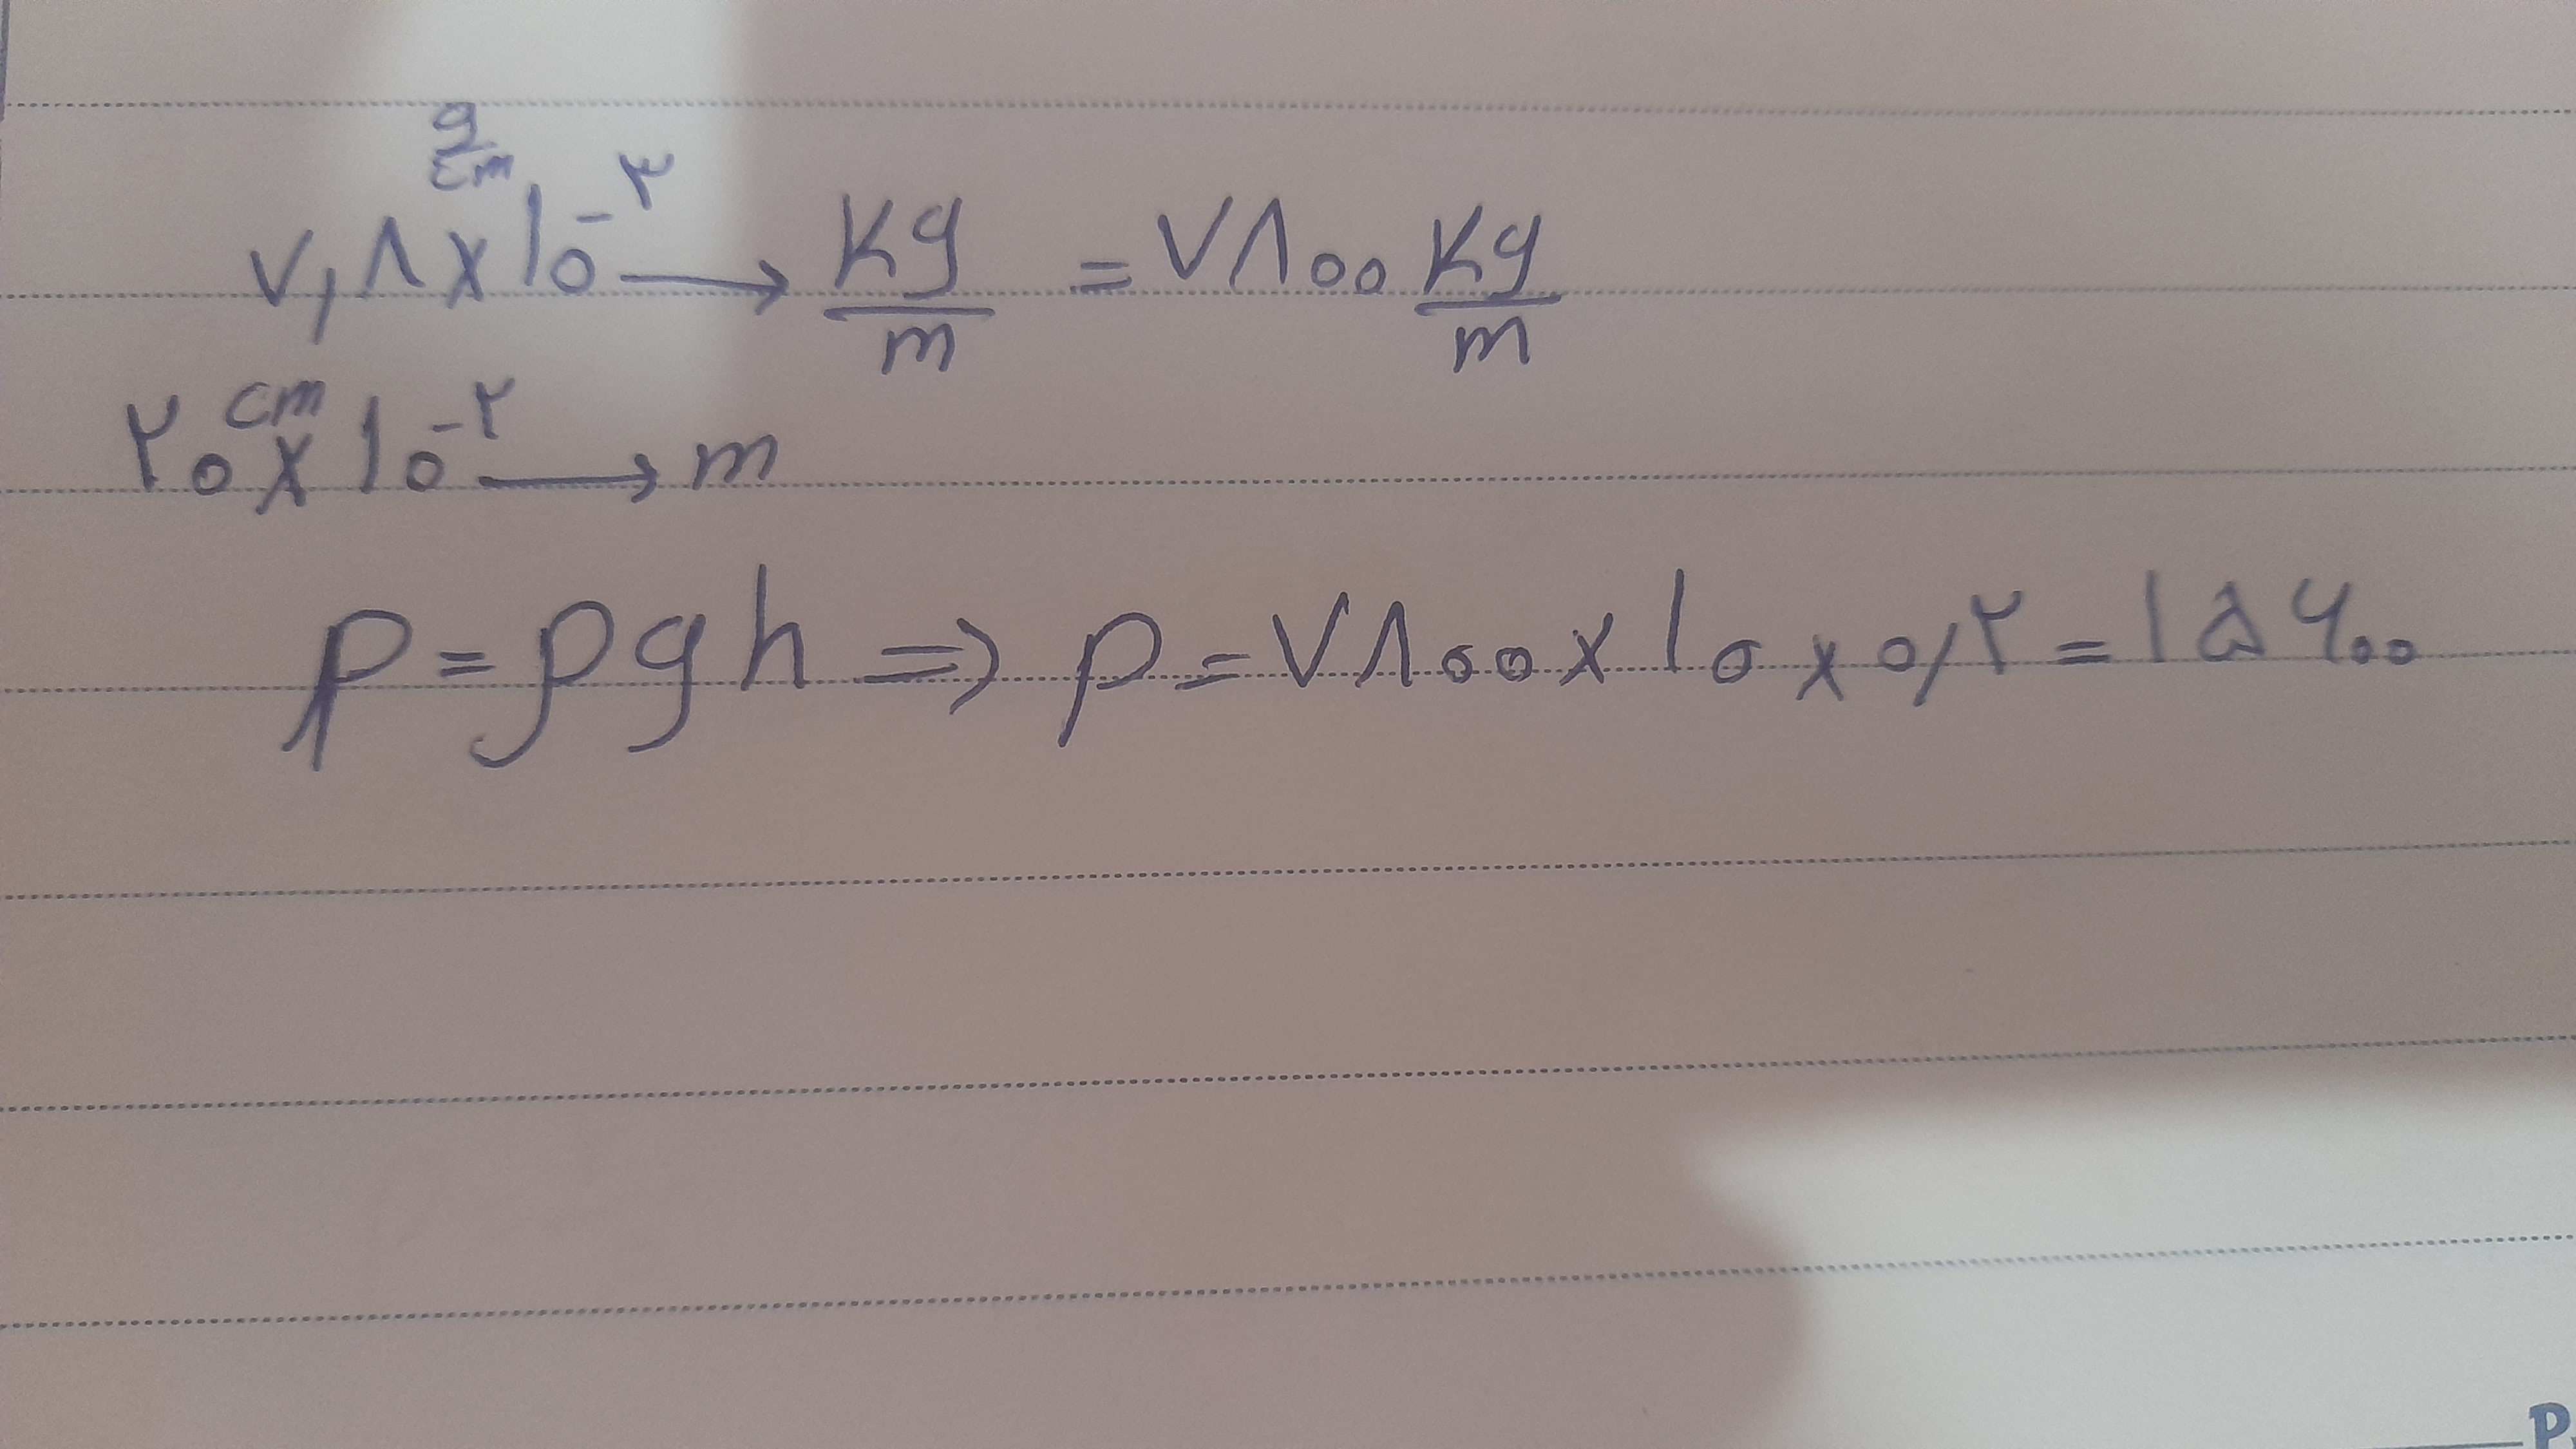 ۷,۸ g/cm × ۱۰^-۳ → kg/m = ۷۸۰۰ kg/m
۲۰ cm × ۱۰^-۲ → m
P = ρgh ⇒ P = ۷۸۰۰ × ۱۰ × ۰/۲ = ۱۵۶۰۰